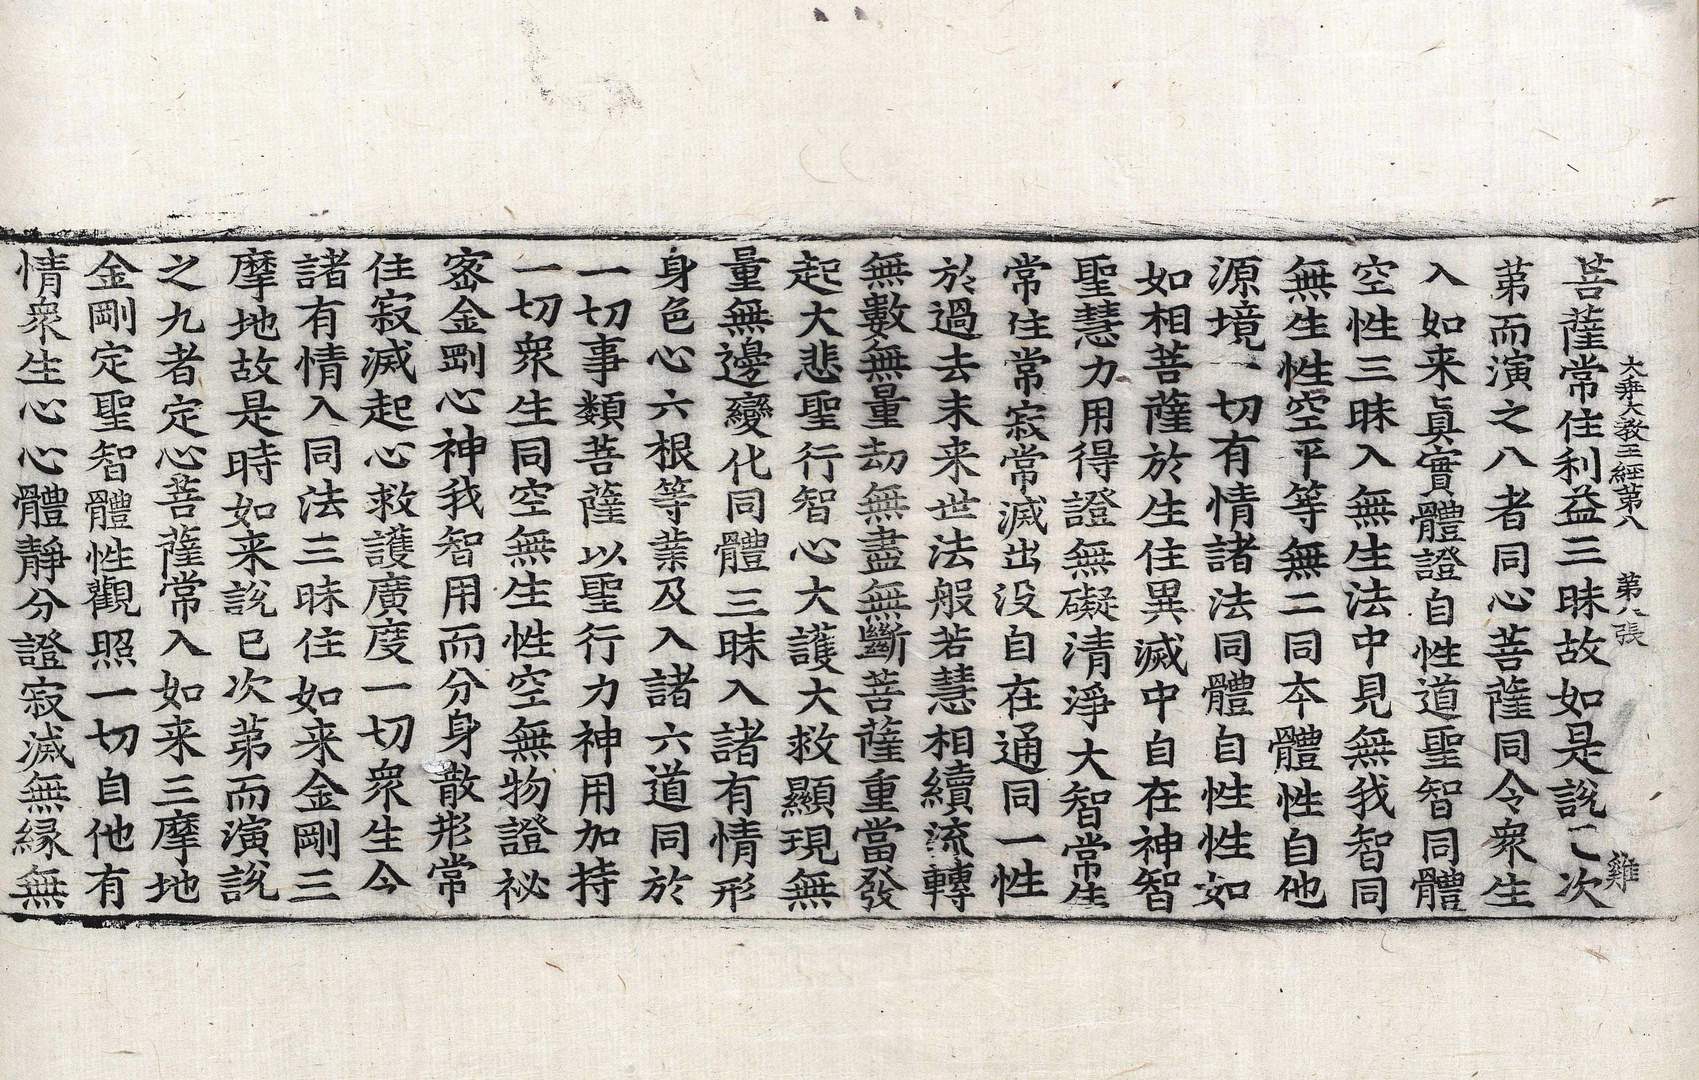 大乗大教王經第八　第八張　雞
菩薩常住利益三昧故如是說已次
苐而演之八者同心菩薩同令衆生
入如来眞實體證自性道聖智同體
空性三昧入無生法中見無我智同
無生性空平等無二同本體性自他
源境一切有情諸法同體自性性如
如相菩薩於生住異滅中自在神智
聖慧力用得證無礙清淨大智常生
常住常寂常滅出没自在通同一性
於過去未来世法般若慧相續流轉
無數無量劫無盡無斷菩薩重當發
起大悲聖行智心大護大救顯現無
量無邊變化同體三昧入諸有情形
身色心六根等業及入諸六道同於
一切事類菩薩以聖行力神用加持
一切衆生同空無生性空無物證祕
宻金剛心神我智用而分身散形常
住寂滅起心救護廣度一切衆生令
諸有情入同法三昧住如来金剛三
摩地故是時如来說已次苐而演說
之九者定心菩薩常入如来三摩地
金剛定聖智體性觀照一切自他有
情衆生心心體靜分證寂滅無緣無